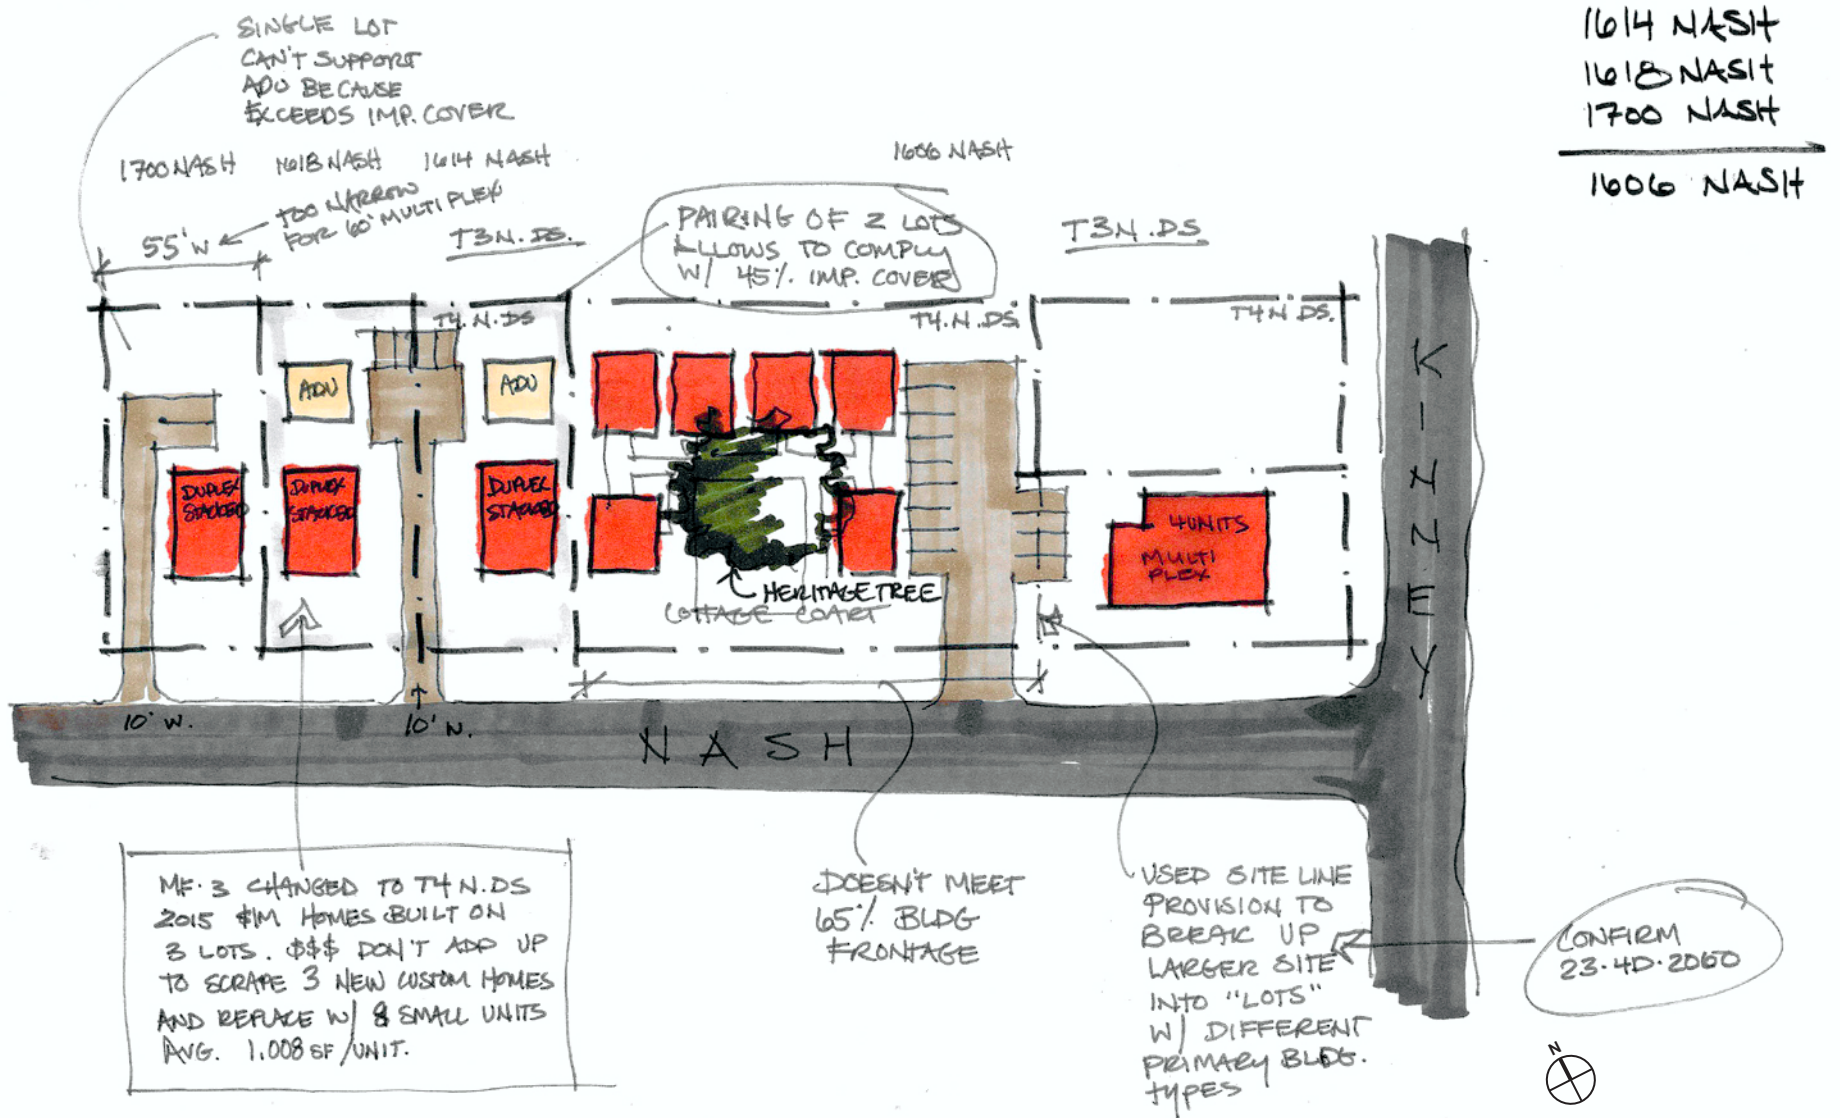 1614 NASH
1618 NASH
1700 NASH
1606 NASH
SINGLE LOT
CAN'T SUPPORT
ADU BECAUSE
EXCEEDS IMP. COVER
1700 NASH
1618 NASH
1614 NASH
1606 NASH
55' W
TOO NARROW
FOR 60' MULTIPLEX
T3N.DS.
PAIRING OF 2 LOTS
ALLOWS TO COMPLY
W/ 45% IMP. COVER
T3N.DS
T4.N.DS
T4.N.DS.
T4 N DS.
ADU
ADU
DUPLEX
STACKED
DUPLEX
STACKED
DUPLEX
STACKED
4 UNITS
MULTI
PLEX
HERITAGE TREE
COTTAGE COART
KINNEY
10' W.
10' W.
NASH
MF-3 CHANGED TO T4 N.DS
2015 $1M HOMES BUILT ON
3 LOTS. $$$ DON'T ADD UP
TO SCRAPE 3 NEW CUSTOM HOMES
AND REPLACE W/ 8 SMALL UNITS
AVG. 1,008 SF/UNIT.
DOESN'T MEET
65% BLDG
FRONTAGE
USED SITE LINE
PROVISION TO
BREAK UP
LARGER SITE
INTO "LOTS"
W/ DIFFERENT
PRIMARY BLDG.
TYPES
CONFIRM
23-4D-2060
N